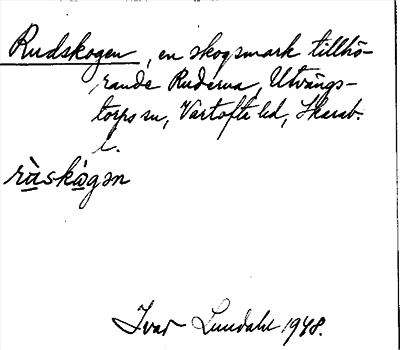 Rudskogen, en skogsmark tillhö-
rande Ruderna, Utvängs-
torps sn, Vartofta hd, Skarab.
l.
ràskógən
Ivar Lundahl 1948.